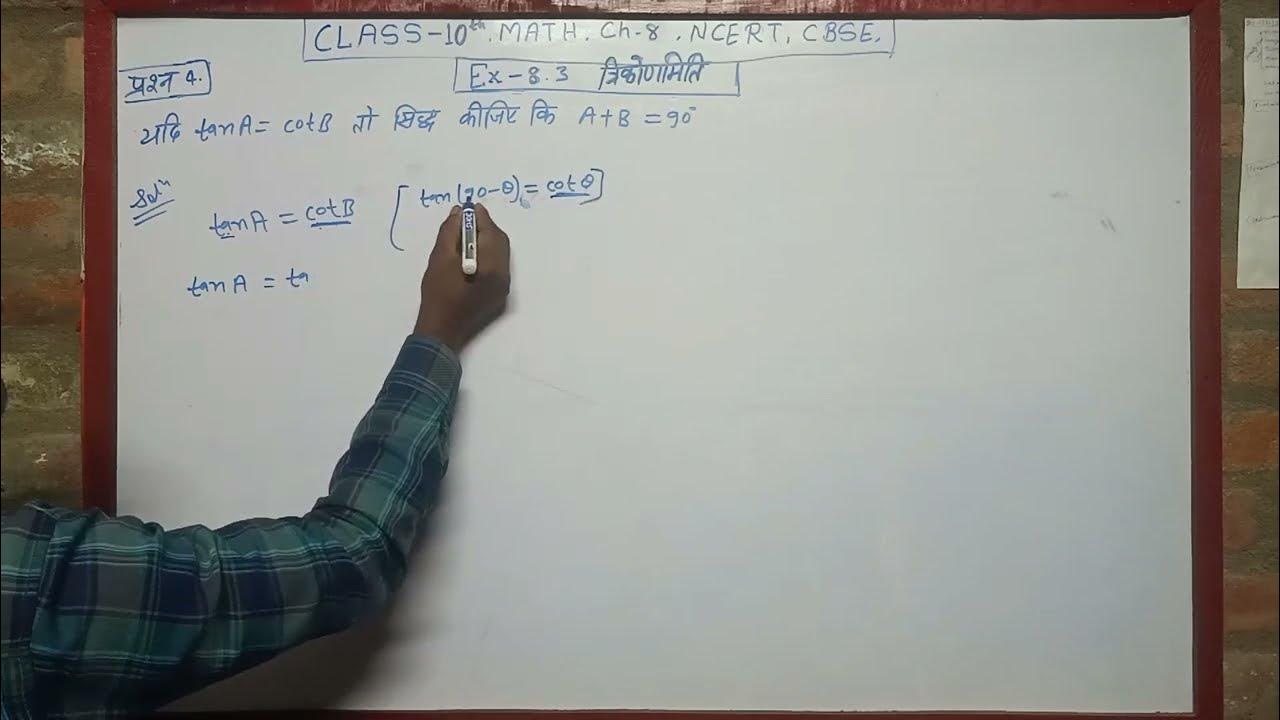 CLASS-10th. MATH. Ch-8. NCERT. CBSE.
Ex-8.3 त्रिकोणमिति
प्रश्न 4.
यदि tanA = cotB तो सिद्ध कीजिए कि A+B = 90°
Solⁿ
tanA = cotB [tan(90-θ) = cotθ]
tanA = ta